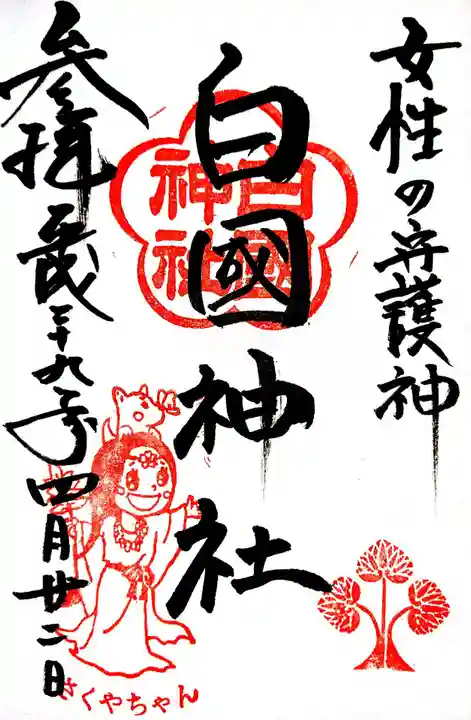 女性の守護神
白國神社
白國
神社
参拝 平成二十九年四月廿二日
さくやちゃん